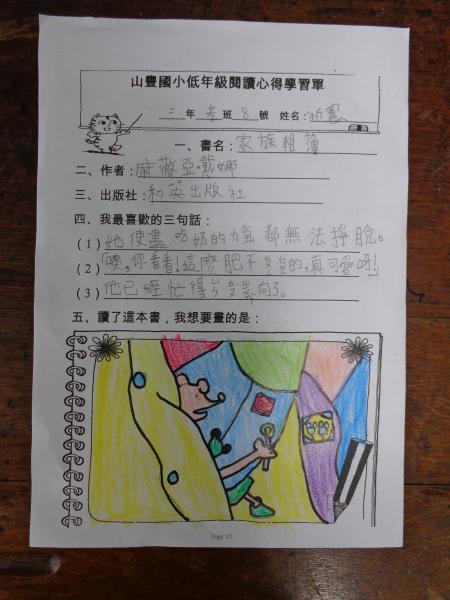 山豐國小低年級閱讀心得學習單
二 年 孝 班 8 號 姓名：
一、書名：家族相簿
二、作者：席薇亞・戴娜
三、出版社：和英出版社
四、我最喜歡的三句話：
(1) 她使盡吃奶的力氣都無法掙脫。
(2) 噢，你看看！這麼肥不隆的，真可愛呀！
(3) 他已經忙得
五、讀了這本書，我想要畫的是：
Page 1/1